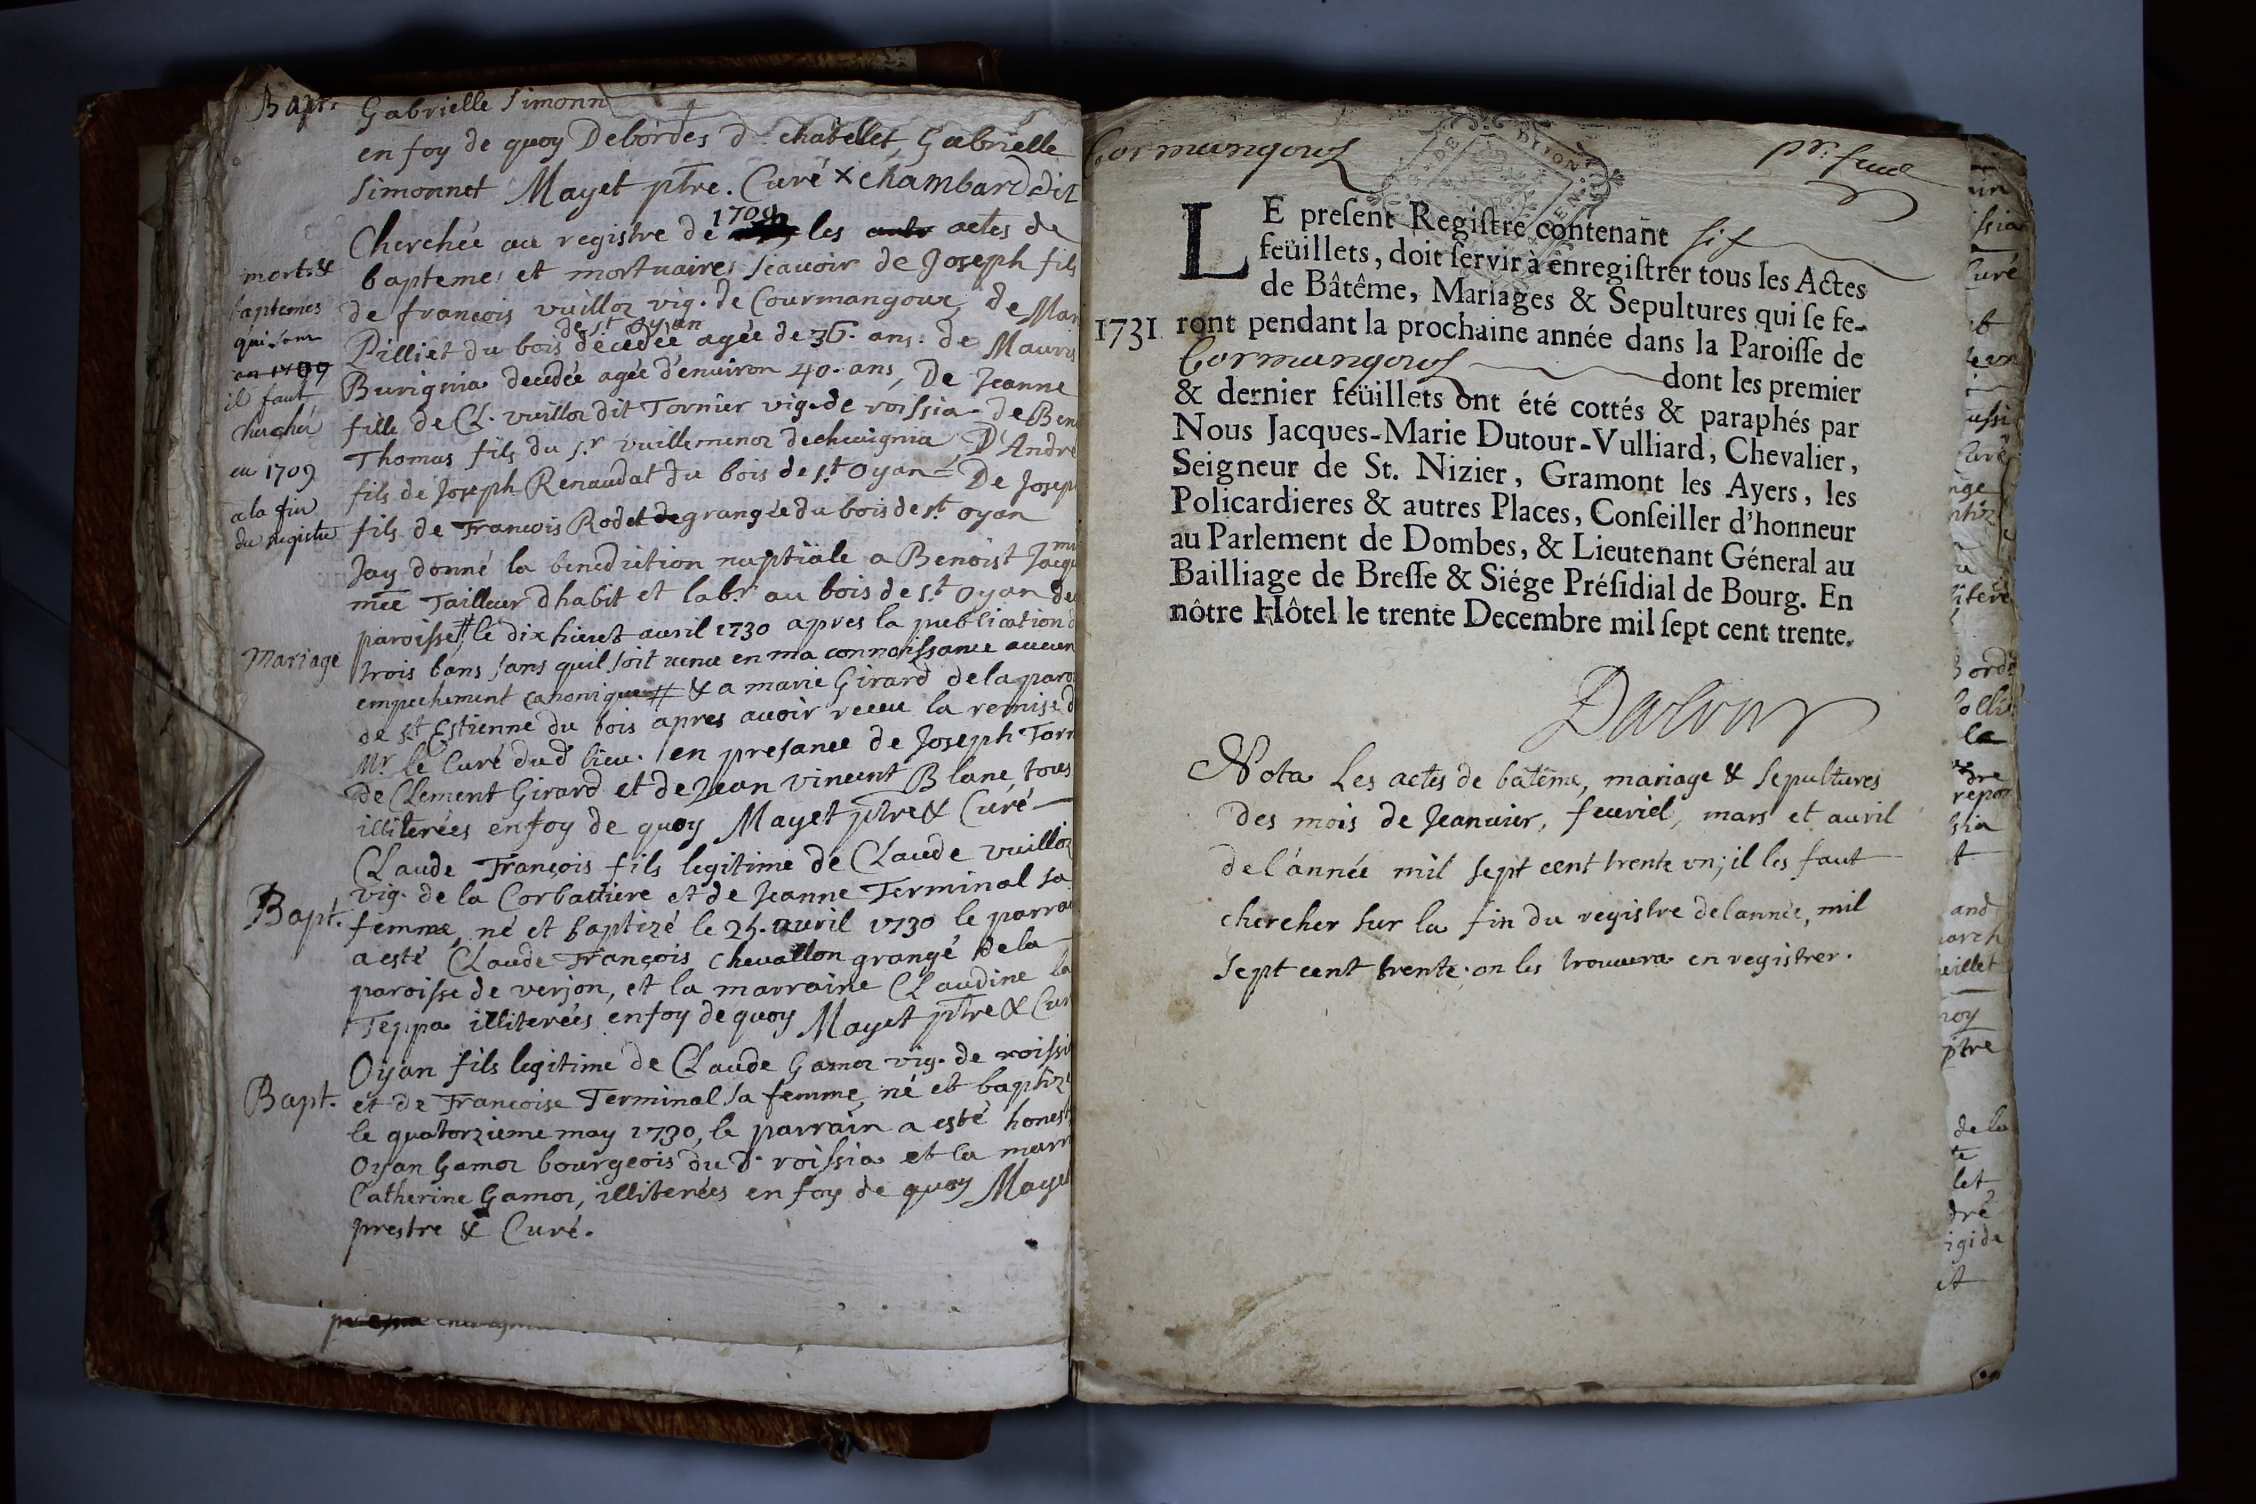 Bapt. Gabrielle Simonn
en foy de quoy Debordes d. chatellet, Gabrielle
Simonnet Mayet ptre. Curé x chambard dit
Cherchée au registre de 1709 les actes de
baptemes et mortuaires sçavoir de Joseph fils
de françois vuilloz vig. de Courmangoux, de Mar
Pilliet du bois de st Oyan décédée agée de 36. ans: de
Burignia decedée agée d'environ 40. ans, De Jeanne
fille de Cl. vuilloz dit Tornier vig. de roissia. de Ben
Thomas fils du sr vuillemenoz de chevignia D'André
fils de Joseph Renaudat du bois de st Oyan = De Josep
fils de François Rodet de grangée du bois de st oyan
mort. &
baptemes
qui sont
en 1709
il faut
chercher
en 1709
a la fin
du registre
Jay donné la benediction nuptiale a Benoist Jacq
mee Tailleur dhabit et labr au bois de st Oyan de
paroisse # le dix huict avril 1730 apres la publication d
Mariage
trois bans sans quil soit venu en ma connoissance aucun
empechement canonique # & a marie Girard de la paro
de st Estienne du bois apres avoir receu la remise d
Mr le Curé dud lieu. en presance de Joseph Torn
de Clement Girard et de Jean vincent Blanc tous
illiterées en foy de quoy Mayet ptre & Curé
Claude François fils legitime de Claude vuilloz
vig. de la Corbatiere et de Jeanne Terminal sa
Bapt. femme, né et baptizé le 25. avril 1730 le parra
a esté Claude François chevallon grangé de la
paroisse de verjon, et la marraine Claudine la
Teppa illiterées en foy de quoy Mayet ptre & Cur
Oyan fils legitime de Claude Gamoz vig. de roissi
Bapt. et de Françoise Terminal sa femme, né et baptiz
le quatorzieme may 1730, le parrain a esté honest
Oyan Gamoz bourgeois du d. roissia et la marr
Catherine Gamoz, illiterées en foy de quoy Mayet
prestre & Curé.
Cormangoux
pr. feuil
LE present Registre contenant six
feüillets, doit servir à enregistrer tous les Actes
de Bâtême, Mariages & Sepultures qui se fe-
1731 ront pendant la prochaine année dans la Paroisse de
Cormangoux dont les premier
& dernier feüillets ont été cottés & paraphés par
Nous Jacques-Marie Dutour-Vulliard, Chevalier,
Seigneur de St. Nizier, Gramont les Ayers, les
Policardieres & autres Places, Conseiller d'honneur
au Parlement de Dombes, & Lieutenant Géneral au
Bailliage de Bresse & Siége Présidial de Bourg. En
nôtre Hôtel le trente Decembre mil sept cent trente.
Dutour
Nota Les actes de bâtême, mariage & sepultures
Des mois de Jeanvier, fevriel, mars et avril
de l'année mil sept cent trente un; il les faut
chercher sur la fin du registre de lannée, mil
sept cent trente. on les trouvera en registrer.